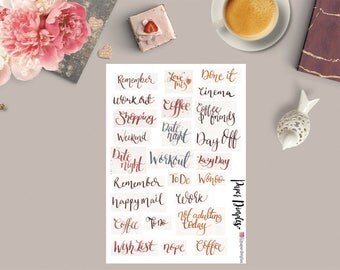 Remember
Love this
Done it
Work out
Coffee
Cinema
Shopping
Coffee friends
Weekend
Date night
Day Off
Date night
Workout
Lazy Day
Remember
To Do
Happy mail
Work
Coffee
To Do
Not adulting today
Wish List
nope
Coffee